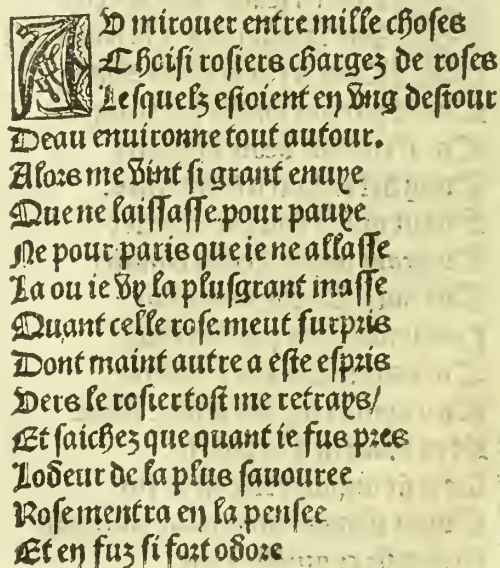 AV mirouer entre mille choses
Choisi rosiers chargez de roses
Lesquelz estoient en vng destour
Deau enuironne tout autour.
Alors me vint si grant enuye
Que ne laissasse pour pauye
Ne pour paris que ie ne allasse
La ou ie vy la plusgrant masse
Quant celle rose meut surpris
Dont maint autre a este espris
Vers le rosier tost me retrays/
Et saichez que quant ie fus pres
Lodeur de la plus sauouree
Rose mentra en la pensee
Et en fuz si fort odore